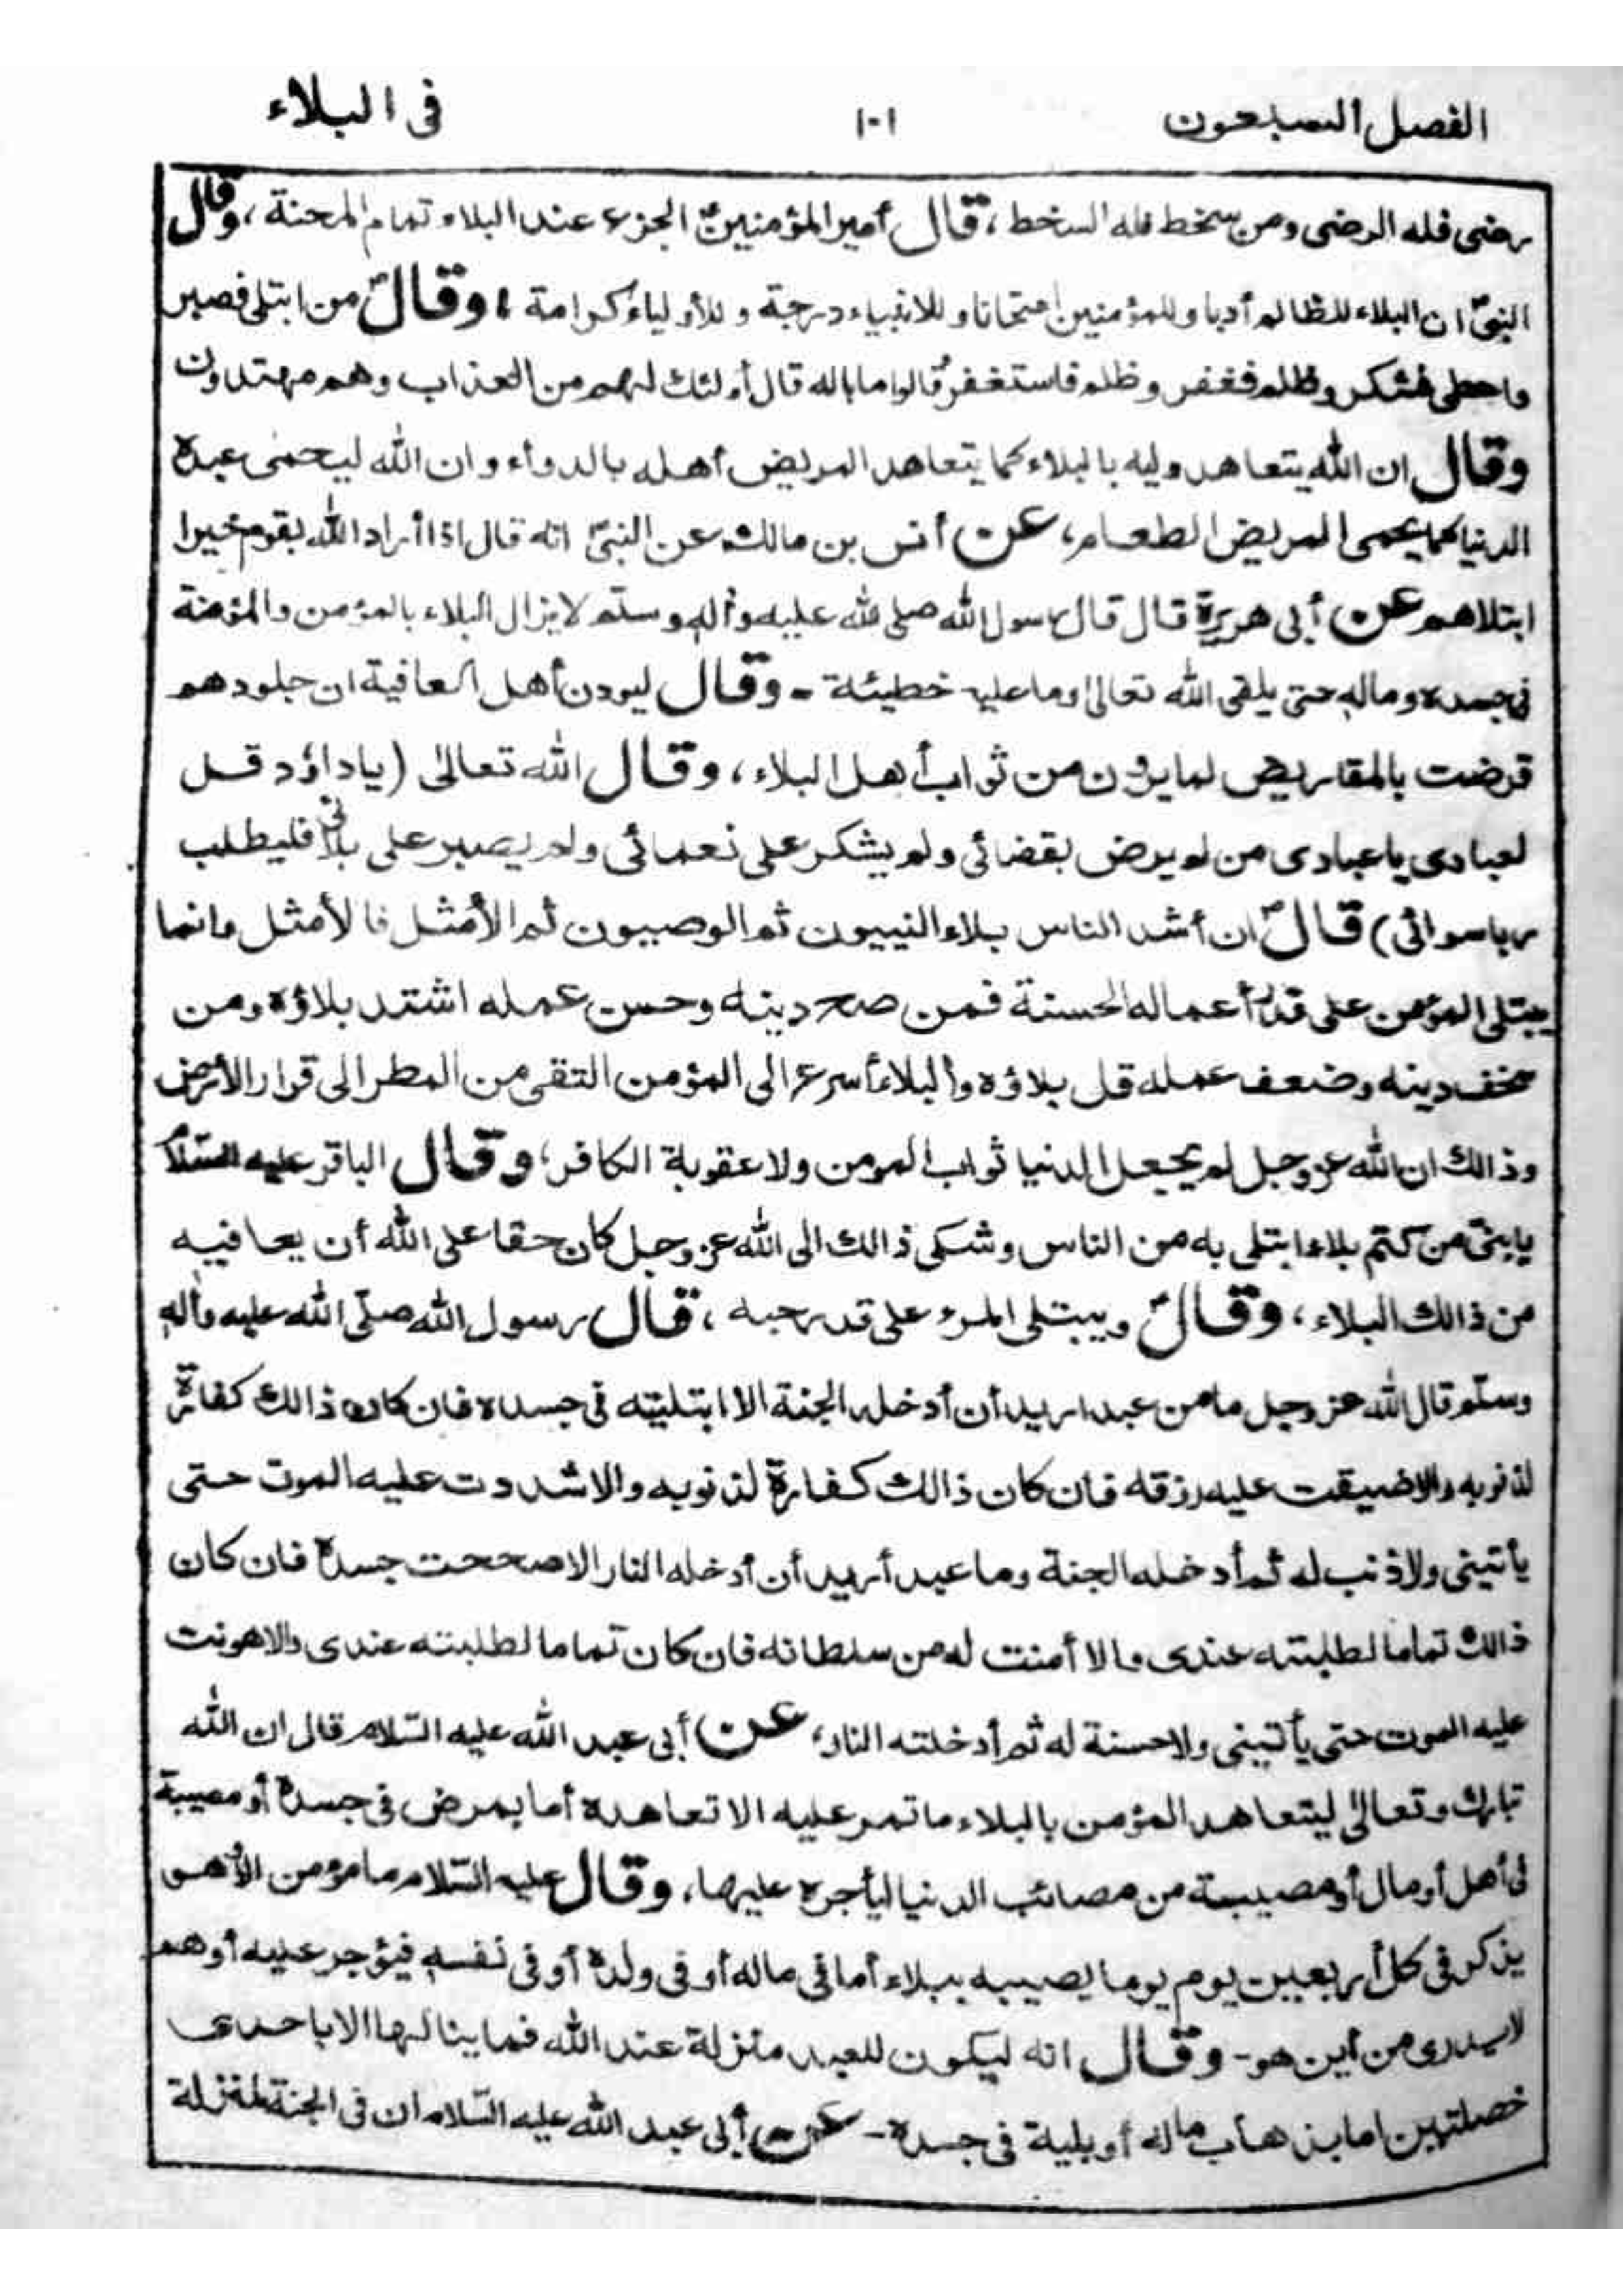 الفصل السبعون ١٠١ فى البلاء
رضى فله الرضى ومن سخط فله السخط، قال أمير المؤمنينؑ الجزع عند البلاء تمام المحنة، وقال
النبىؐ ان البلاء للظالم أدبا وللمؤمنين امتحانا وللانبياء درجة وللأولياء كرامة، وقالؐ من ابتلى فصبر
واعطى فشكر وظلم فغفر وظلم فاستغفر قالوا ما باله قال أولئك لهم من العذاب وهم مهتدون
وقال ان الله يتعاهد وليه بالبلاء كما يتعاهد المريض أهله بالدواء وان الله ليحمى عبده
الدنيا كما يحمى المريض الطعام، عن أنس بن مالك عن النبىؐ انه قال اذا أراد الله بقوم خيرا
ابتلاهم عن أبى هريرة قال قال رسول الله صلى الله عليه وآله وسلم لا يزال البلاء بالمؤمن والمؤمنة
فى جسده وماله حتى يلقى الله تعالىٰ وما عليه خطيئة - وقال ليودن أهل العافية ان جلودهم
قرضت بالمقاريض لما يرون من ثواب أهل البلاء، وقال الله تعالىٰ (ياداؤد قل
لعبادى ياعبادى من لم يرض بقضائى ولم يشكر على نعمائى ولم يصبر على بلائى فليطلب
ربا سوائى) قالؐ ان أشد الناس بلاء النبيون ثم الوصيون ثم الأمثل فالأمثل وانما
يبتلى المؤمن على قدر أعماله الحسنة فمن صح دينه وحسن عمله اشتد بلاؤه ومن
سخف دينه وضعف عمله قل بلاؤه والبلاء أسرع الى المؤمن التقى من المطر الى قرار الأرض
وذالك ان الله عز وجل لم يجعل الدنيا ثواب المومن ولا عقوبة الكافر، وقال الباقر عليه السّلام
يابنىّ من كتم بلاء ابتلى به من الناس وشكى ذالك الى الله عز وجل كان حقا على الله أن يعافيه
من ذالك البلاء، وقالؑ ويبتلى المرء على قدر حبه، قال رسول الله صلّى الله عليه وآله
وسلّم قال الله عز وجل ما من عبد اريد أن أدخله الجنة الا ابتليته فى جسده فان كان ذالك كفارة
لذنوبه والا ضيقت عليه رزقه فان كان ذالك كفارة لذنوبه والا شددت عليه الموت حتى
يأتينى ولا ذنب له ثم أدخله الجنة وما عبد أريد أن أدخله النار الا صححت جسده فان كان
ذالك تماما لطلبته عندى والا أمنت له من سلطانه فان كان تماما لطلبته عندى والا هونت
عليه الموت حتى يأتينى ولا حسنة له ثم أدخلته النار، عن أبى عبد الله عليه السّلام قال ان الله
تبارك وتعالىٰ ليتعاهد المؤمن بالبلاء ما تمر عليه الا تعاهده أما بمرض فى جسده أو مصيبة
فى أهل أو مال أو مصيبة من مصائب الدنيا ليأجره عليها، وقال عليه السّلام ما مؤمن الا هو
يذكر فى كل أربعين يوم يوما يصيبه ببلاء أما فى ماله أو فى ولده أو فى نفسه فيؤجر عليه أو هم
لايدرى من أين هو - وقال انه ليكون للعبد منزلة عند الله فما ينالها الا باحدى
خصلتين اما بذهاب ماله أو بلية فى جسده - عن أبى عبد الله عليه السّلام ان فى الجنة لمنزلة